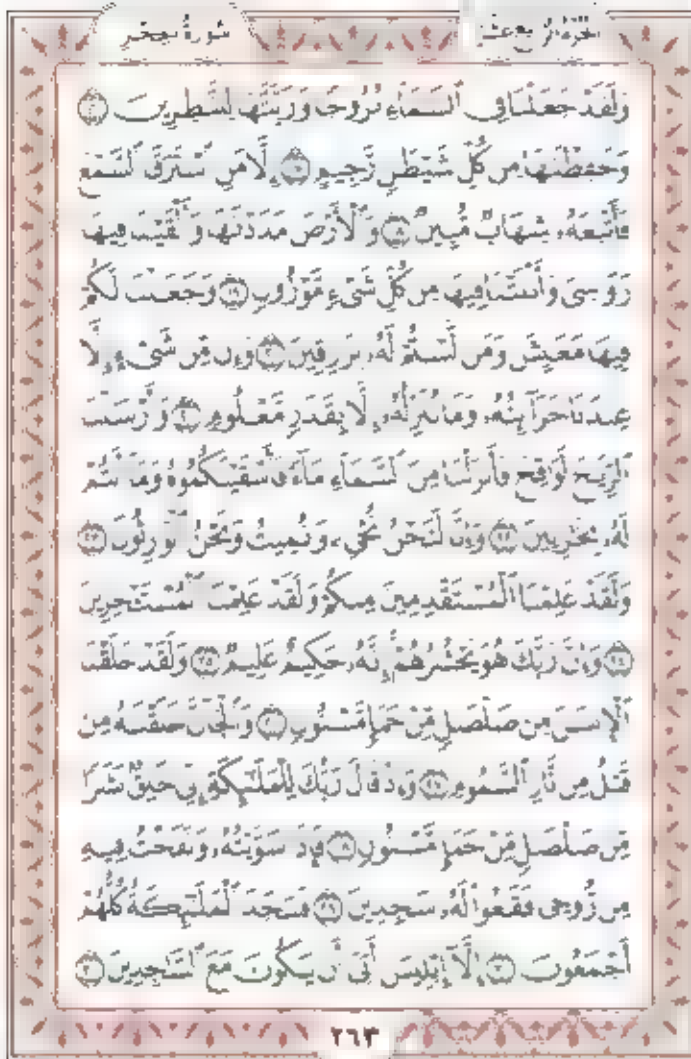 سورة الحجر
الجزء الرابع عشر
وَلَقَدْ جَعَلْنَا فِي ٱلسَّمَآءِ بُرُوجًا وَزَيَّنَّٰهَا لِلنَّٰظِرِينَ ١٦
وَحَفِظْنَٰهَا مِن كُلِّ شَيْطَٰنٍ رَّجِيمٍ ١٧ إِلَّا مَنِ ٱسْتَرَقَ ٱلسَّمْعَ
فَأَتْبَعَهُۥ شِهَابٌ مُّبِينٌ ١٨ وَٱلْأَرْضَ مَدَدْنَٰهَا وَأَلْقَيْنَا فِيهَا
رَوَٰسِىَ وَأَنۢبَتْنَا فِيهَا مِن كُلِّ شَىْءٍ مَّوْزُونٍ ١٩ وَجَعَلْنَا لَكُمْ
فِيهَا مَعَٰيِشَ وَمَن لَّسْتُمْ لَهُۥ بِرَٰزِقِينَ ٢٠ وَإِن مِّن شَىْءٍ إِلَّا
عِندَنَا خَزَآئِنُهُۥ وَمَا نُنَزِّلُهُۥٓ إِلَّا بِقَدَرٍ مَّعْلُومٍ ٢١ وَأَرْسَلْنَا
ٱلرِّيَٰحَ لَوَٰقِحَ فَأَنزَلْنَا مِنَ ٱلسَّمَآءِ مَآءً فَأَسْقَيْنَٰكُمُوهُ وَمَآ أَنتُمْ
لَهُۥ بِخَٰزِنِينَ ٢٢ وَإِنَّا لَنَحْنُ نُحْىِۦ وَنُمِيتُ وَنَحْنُ ٱلْوَٰرِثُونَ ٢٣
وَلَقَدْ عَلِمْنَا ٱلْمُسْتَقْدِمِينَ مِنكُمْ وَلَقَدْ عَلِمْنَا ٱلْمُسْتَـْٔخِرِينَ
٢٤ وَإِنَّ رَبَّكَ هُوَ يَحْشُرُهُمْ إِنَّهُۥ حَكِيمٌ عَلِيمٌ ٢٥ وَلَقَدْ خَلَقْنَا
ٱلْإِنسَٰنَ مِن صَلْصَٰلٍ مِّنْ حَمَإٍ مَّسْنُونٍ ٢٦ وَٱلْجَآنَّ خَلَقْنَٰهُ مِن
قَبْلُ مِن نَّارِ ٱلسَّمُومِ ٢٧ وَإِذْ قَالَ رَبُّكَ لِلْمَلَٰٓئِكَةِ إِنِّى خَٰلِقٌۢ بَشَرًا
مِّن صَلْصَٰلٍ مِّنْ حَمَإٍ مَّسْنُونٍ ٢٨ فَإِذَا سَوَّيْتُهُۥ وَنَفَخْتُ فِيهِ
مِن رُّوحِى فَقَعُوا۟ لَهُۥ سَٰجِدِينَ ٢٩ فَسَجَدَ ٱلْمَلَٰٓئِكَةُ كُلُّهُمْ
أَجْمَعُونَ ٣٠ إِلَّآ إِبْلِيسَ أَبَىٰٓ أَن يَكُونَ مَعَ ٱلسَّٰجِدِينَ ٣١
٢٦٣